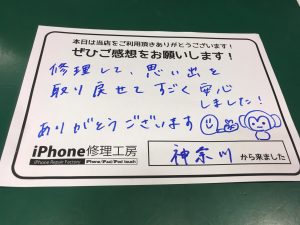 本日は当店をご利用頂きありがとうございます！
ぜひご感想をお願いします！
修理して、思い出を
取り戻せてすごく安心
しました！
ありがとうございます
iPhone修理工房
iPhone Repair Factory
iPhone/iPad/iPod touch
神奈川 から来ました